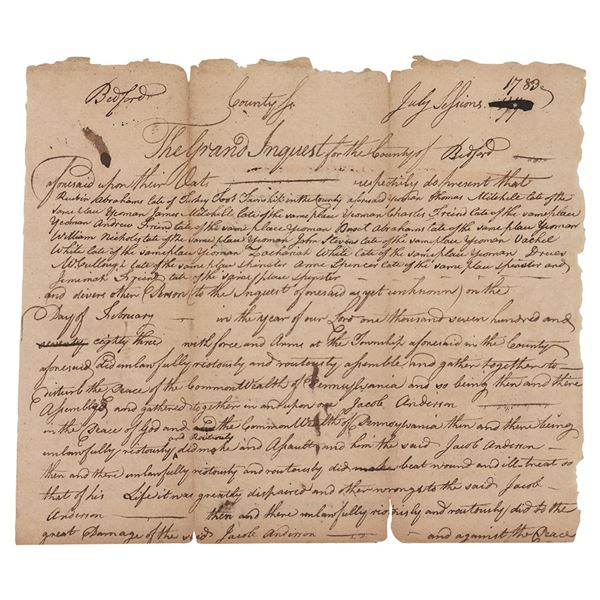 Bedford County Ss July Sessions 1783
The Grand Inquest for the County of Bedford
aforesaid upon their Oats respectively do present that
Reubin Abrahams late of Turkey Foot Township in the County aforesaid Yeoman Thomas Mitchell late of the
same place Yeoman James Mitchell late of the same place Yeoman Charles Friend late of the same place
Yeoman Andrew Friend late of the same place Yeoman Basel Abrahams late of the same place Yeoman
William Nichols late of the same place Yeoman John Stevens late of the same place Yeoman Vachel
White late of the same place Yeoman Zachariah White late of the same place Yeoman
McCullough late of the same place Spinster Ann Spencer late of the same place Spinster and
Jemimah Friend late of the same place Spinster
and divers other Persons (to the Inquest aforesaid as yet unknown) on the
Day of February in the Year of our Lord one thousand seven hundred and
seventy eighty three with force and Arms at the Township aforesaid in the County
aforesaid, did unlawfully riotously and routously assemble and gather together to
disturb the Peace of the CommonWealth of Pennsylvania and so being then and there
Assembled and gathered together in and upon one Jacob Anderson
in the Peace of God and the CommonWealth of Pennsylvania then and there being
unlawfully riotously and Routously did make and Assault and him the said Jacob Anderson
then and there unlawfully riotously and routously did make beat wound and ill-treat so
that of his Life it was greatly dispaired and other wrongs to the said Jacob
Anderson then and there unlawfully riotously and routously did to the
great Damage of the said Jacob Anderson and against the Peace